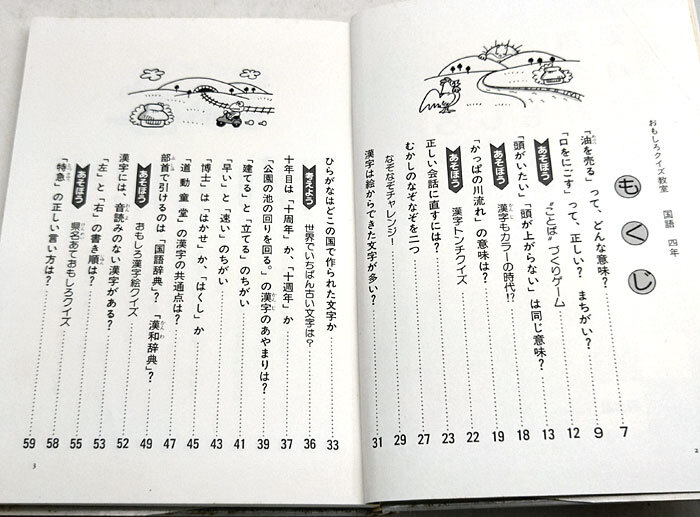 おもしろクイズ教室 国語 四年
もくじ
「油を売る」って、どんな意味? 7
「口をにごす」って、正しい? まちがい? 9
あそぼう "ことば"づくりゲーム 12
「頭がいたい」「頭が上がらない」は同じ意味? 13
あそぼう 漢字もカラーの時代!? 18
「かっぱの川流れ」の意味は? 19
あそぼう 漢字トンチクイズ 22
正しい会話に直すには? 23
むかしのなぞなぞを二つ 27
なぞなぞチャレンジ! 29
漢字は絵からできた文字が多い? 31
2
ひらがなはどこの国で作られた文字か 33
考えよう 世界でいちばん古い文字は? 36
十年目は「十周年」か、「十週年」か 37
「公園の池の回りを回る。」の漢字のあやまりは? 39
「建てる」と「立てる」のちがい 41
「早い」と「速い」のちがい 43
「博士」は「はかせ」か、「はくし」か 45
「道動童堂」の漢字の共通点は? 47
部首で引けるのは「国語辞典」?「漢和辞典」? 49
あそぼう おもしろ漢字絵クイズ 52
漢字には、音読みのない漢字がある? 53
「左」と「右」の書き順は? 55
あそぼう 県名あておもしろクイズ 58
「特急」の正しい言い方は? 59
3